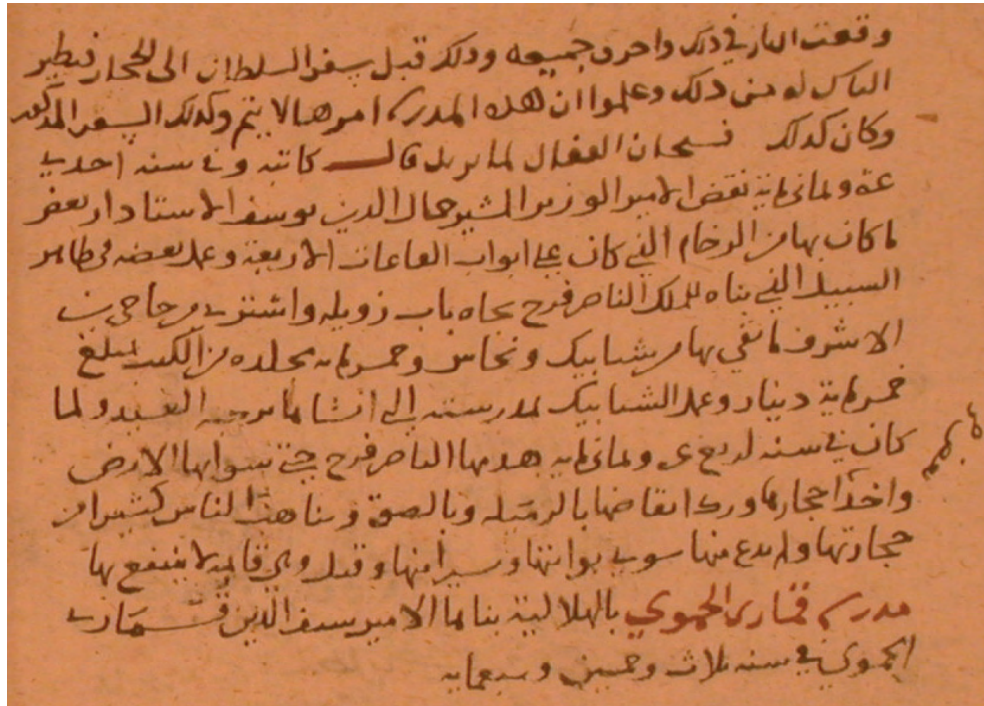 وقعت النار في ذلك واحرق جميعه وذلك قبل سفر السلطان الى الحجاز فتطير
الناس له من ذلك وعلموا ان هذه المدرسه امرها لا يتم وكذلك السفر المذكور
وكان كذلك فسبحان الفعال لما يريد قال كاتبه وفي سنه احدى
عشرة وثمانمايه نقض الامير الوزير المشير جمال الدين يوسف الاستادار بعض
ما كان بها من الرخام الذي كان على ابواب القاعات الاربعة وعمل بعضه في ظاهر
السبيل الذي بناه للملك الناصر فرج تجاه باب زويله واشترى من حاجي بن
الاشرف ما بقي بها من شبابيك ونحاس وخمسمايه مجلده من الكتب بمبلغ
خمسمايه دينار وعمل الشبابيك لمدرسته التي انشاها برحبه العيد ولما
كان في سنه اربع عشر وثمانمايه هدمها الناصر فرج حتى سواها الارض
واخذ احجارها ورد انقاضها بالرميله وبالصوه وبنا هذا الناس كثيرا من
حجارتها ولم يدع منها سوى بوابتها وسيرا منها وقبله وهي قايمه لا ينتفع بها
مدرسه قماري الحموي بالهلالية بناها الامير سيف الدين قماري
الحموي في سنه ثلاث وخمسين وسبعمايه